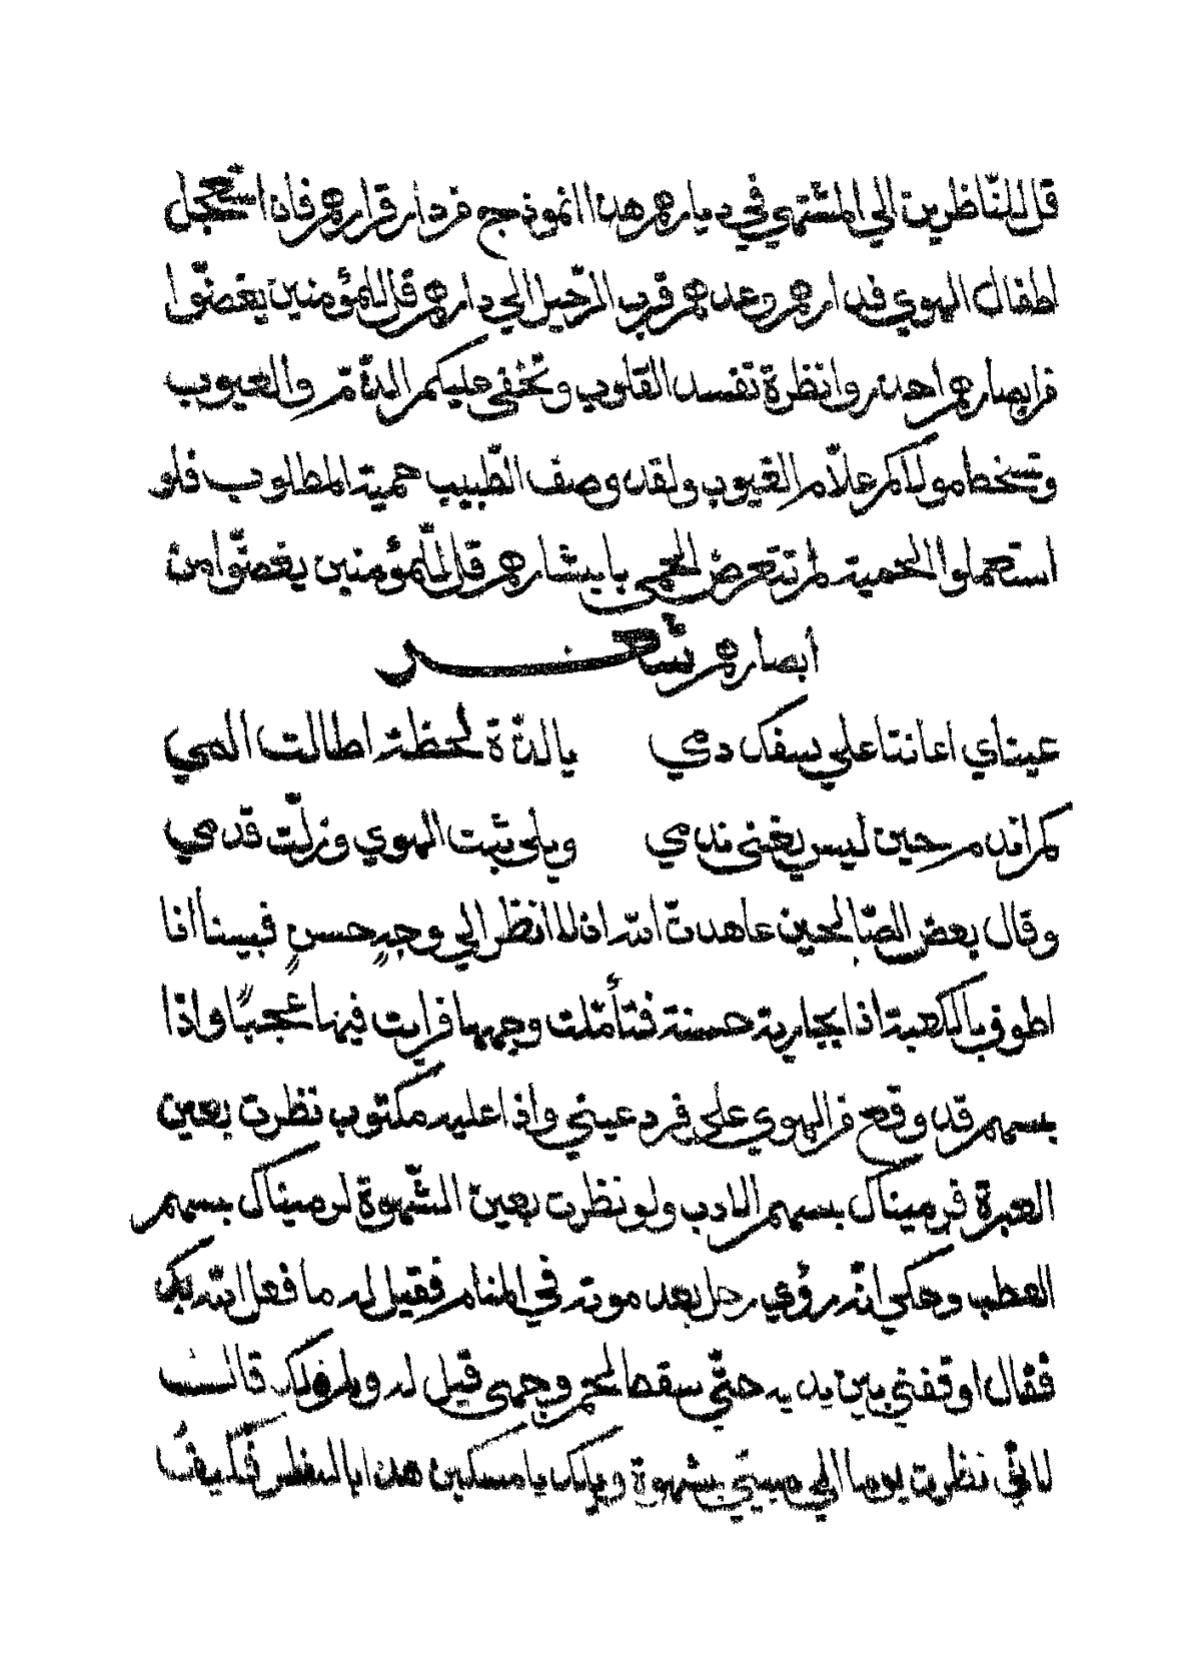 قل للنّاظرين الي المشتهي في ديارهم هذا انموذج من دار قرارهم فان استعجل
اطفال الهوي فدارهم وعدهم قرب الرّحيل الي دارهم قل للمؤمنين يغضّوا
من ابصارهم احذروا نظرة تفسد القلوب وتخفى عليكم الذّمّ والعيوب
وتسخط مولاكم علاّم الغيوب ولقد وصف الطّبيب حمية المطلوب فلو
استعملوا الحمية لم تتعرض الحمى بابيشارهم قل للمؤمنين يغضّوا من
أبصارهم شعر
عيناي اعانتا علي سفك دمي يا لذّة لحظة اطالت المي
كم اندم حين ليس يغنى ندمي ويلى ثبت الهوي وزلّت قدمي
وقال بعض الصّالحين عاهدتّ الله ان لا انظر الي وجهٍ حسنٍ فبينا انا
اطوف بالكعبة اذا بجارية حسنة فتأمّلت وجهها فرايت فيها عجبًا واذا
بسهم قد وقع من الهوي على فرد عيني واذا عليه مكتوب نظرت بعين
العبرة فرميناك بسهم الادب ولو نظرت بعين الشّهوة لرميناك بسهم
العطب وحكي انّه رؤي رجل بعد موته في المنام فقيل له ما فعل الله بك
فقال اوقفني بين يديه حتّى سقط لحم وجهى قيل له ولم ذلك قال
لانّي نظرت يوما الي صبيّ بشهوة ويلك يا مسكين هذا بالنظر فكيف